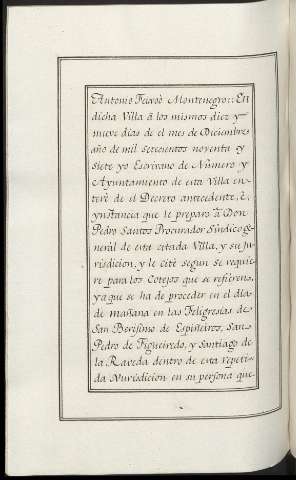 Antonio Feixoò Montenegro:: En
dicha Villa â los mismos diez y
nueve dias de el mes de Diciembre
año de mil setecientos noventa y
siete yo Escrivano de Número y
Ayuntamiento de esta Villa en-
terè de el Decreto antecedente, è,
ynstancia que le preparo â Don
Pedro Santos Procurador Sindico ge-
neràl de esta citada Villa, y su ju-
risdicion, y le citè segun se requie-
re para los Cotejos que se refieren,
y a que se ha de proceder en el dia
de mañana en las Feligresias de
San Berisimo de Espiñeiros, San
Pedro de Figueiredo, y Santiago de
la Raveda dentro de esta repeti-
da Nurisdicion en su persona que